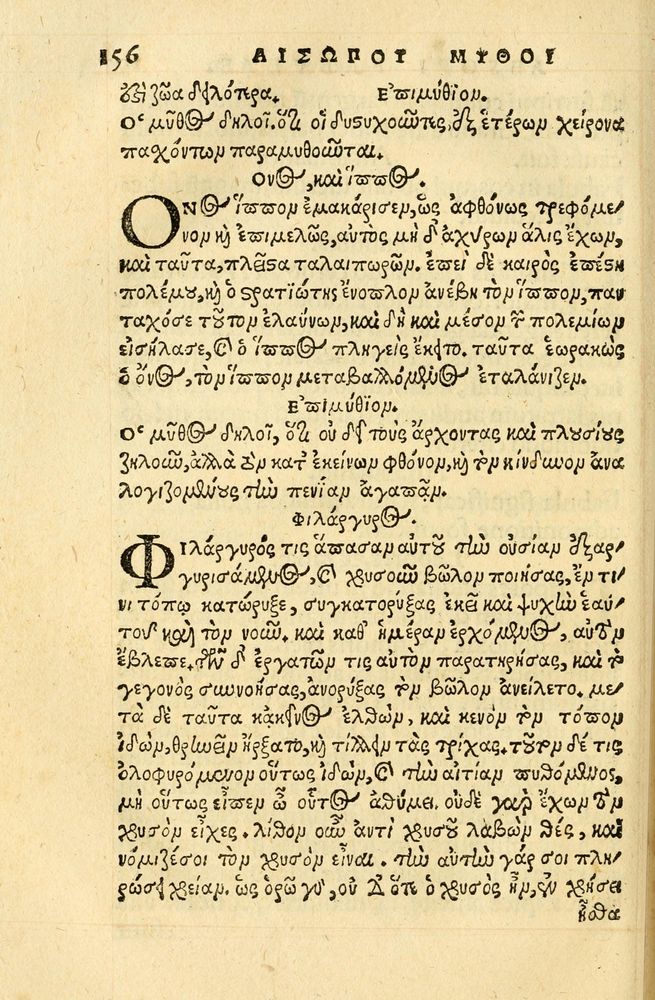 156 ΑΙΣΩΠΟΥ ΜΥΘΟΙ
ἐςὶ ζῶα δειλότερα. Επιμύθιον.
Ο μῦθος δηλοῖ. ὅτι οἱ δυςυχοῦντες, ἐξ ἑτέρων χείρονα
πασχόντων παραμυθοῦνται.
Ονος, καὶ ἵππος.
ΟΝος ἵππον ἐμακάρισεν, ὡς ἀφθόνως τρεφόμε-
νον κὴ ἐπιμελῶς, αὐτὸς μὴ δ' ἀχύρων ἅλις ἔχων,
καὶ ταῦτα, πλεῖςα ταλαιπωρῶν. ἐπεὶ δὲ καιρὸς ἐπέςη
πολέμου, κὴ ὁ ςρατιώτης ἔνοπλον ἀνέβη τὸν ἵππον, παν
ταχόσε τοῦτον ἐλαύνων, καὶ δὴ καὶ μέσον τῶν πολεμίων
εἰσήλασε, καὶ ὁ ἵππος πληγεὶς ἔκειτο. ταῦτα ἑωρακὼς
ὁ ὄνος, τὸν ἵππον μεταβαλλόμενος ἐταλάνιζεν.
Επιμύθιον.
Ο μῦθος δηλοῖ, ὅτι οὐ δεῖ τοὺς ἄρχοντας καὶ πλουσίους
ζηλοῦν, ἀλλὰ τὸν κατ' ἐκείνων φθόνον, κὴ τὸν κίνδυνον ἀνα
λογιζομένους τὴν πενίαν ἀγαπᾶν.
Φιλάργυρος.
ΦΙλάργυρός τις ἅπασαν αὐτοῦ τὴν οὐσίαν ἐξαρ-
γυρισάμενος, καὶ χρυσοῦν βῶλον ποιήσας, ἔν τι-
νι τόπῳ κατώρυξε, συγκατορύξας ἐκεῖ καὶ ψυχὴν ἑαυ-
τοῦ καὶ τὸν νοῦν. καὶ καθ' ἡμέραν ἐρχόμενος, αὐτὸν
ἔβλεπε. τῶν δ' ἐργατῶν τις αὐτὸν παρατηρήσας, καὶ τὸ
γεγονὸς συννοήσας, ἀνορύξας τὸν βῶλον ἀνείλετο. με-
τὰ δὲ ταῦτα κἀκεῖνος ἐλθὼν, καὶ κενὸν τὸν τόπον
ἰδὼν, θρηνεῖν ἤρξατο, κὴ τίλλειν τὰς τρίχας. τοῦτον δέ τις
ὀλοφυρόμενον οὕτως ἰδὼν, καὶ τὴν αἰτίαν πυθόμενος,
μὴ οὕτως εἶπεν ὦ οὗτος ἀθύμει. οὐδὲ γὰρ ἔχων τὸν
χρυσὸν εἶχες. λίθον οὖν ἀντὶ χρυσοῦ λαβὼν θὲς, καὶ
νόμιζέ σοι τὸν χρυσὸν εἶναι. τὴν αὐτὴν γάρ σοι πλη-
ρώσει χρείαν. ὡς ὁρῶ γὰρ, οὐ δ' ὅτε ὁ χρυσὸς ἦν, ἐν χρήσει
ἦσθα